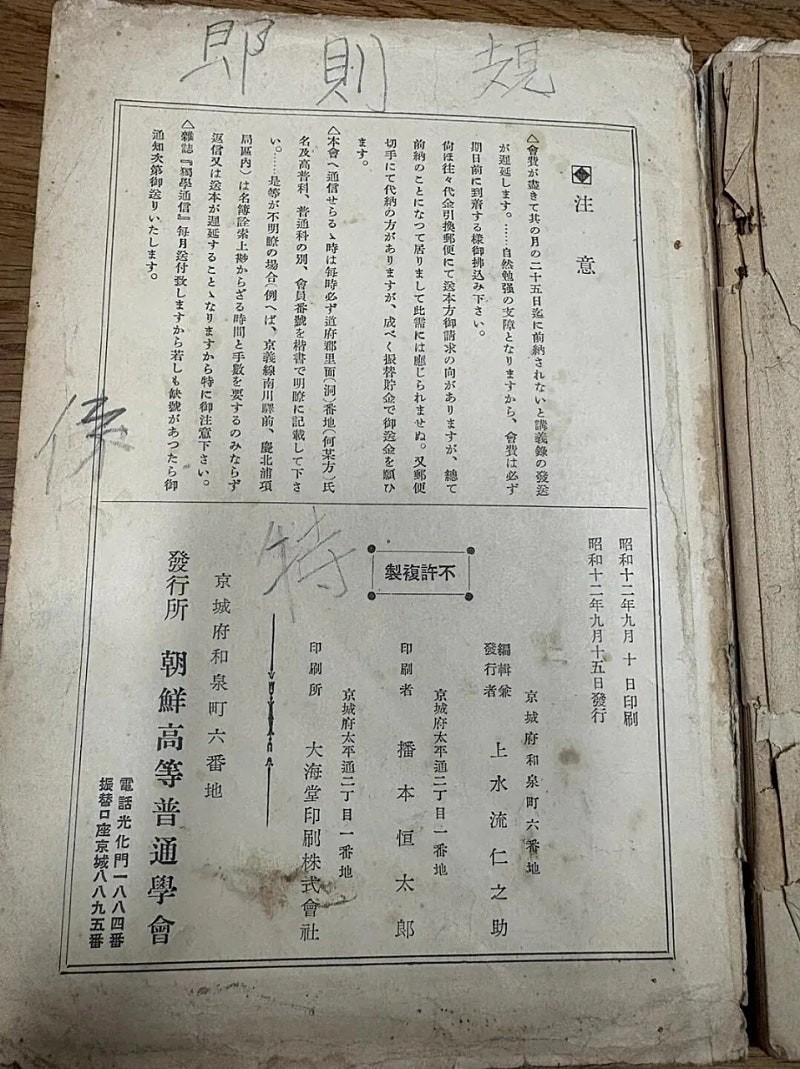 規則即
注意
△會費が盡きて其の月の二十五日迄に前納されないと講義錄の發送
が遲延します。……自然勉强の支障となりますから、會費は必ず
期日前に到着する樣御拂込み下さい。
尙ほ往々代金引換郵便にて送本方御請求の向がありますが、總て
前納のことになつて居りまして此需には應じられませぬ。又郵便
切手にて代納の方がありますが、成べく振替貯金で御送金を願ひ
ます。
△本會へ通信せらるゝ時は每時必ず道府郡里面(洞)番地(何某方)氏
名及高普科、普通科の別、會員番號を楷書で明瞭に記載して下さ
い。……是等が不明瞭の場合(例へば、京義線南川驛前、慶北浦項
局區內)は名簿詮索上尠からざる時間と手數を要するのみならず
返信又は送本が遲延することゝなりますから特に御注意下さい。
△雜誌『獨學通信』每月送付致しますから若しも缺號があつたら御
通知次第御送りいたします。
昭和十二年九月十日印刷
昭和十二年九月十五日發行
不許複製
京城府和泉町六番地
編輯兼發行者 上水流仁之助
京城府太平通二丁目一番地
印刷者 播本恒太郞
京城府太平通二丁目一番地
印刷所 大海堂印刷株式會社
特
京城府和泉町六番地
發行所 朝鮮高等普通學會
電話光化門一八八四番
振替口座京城八八九五番